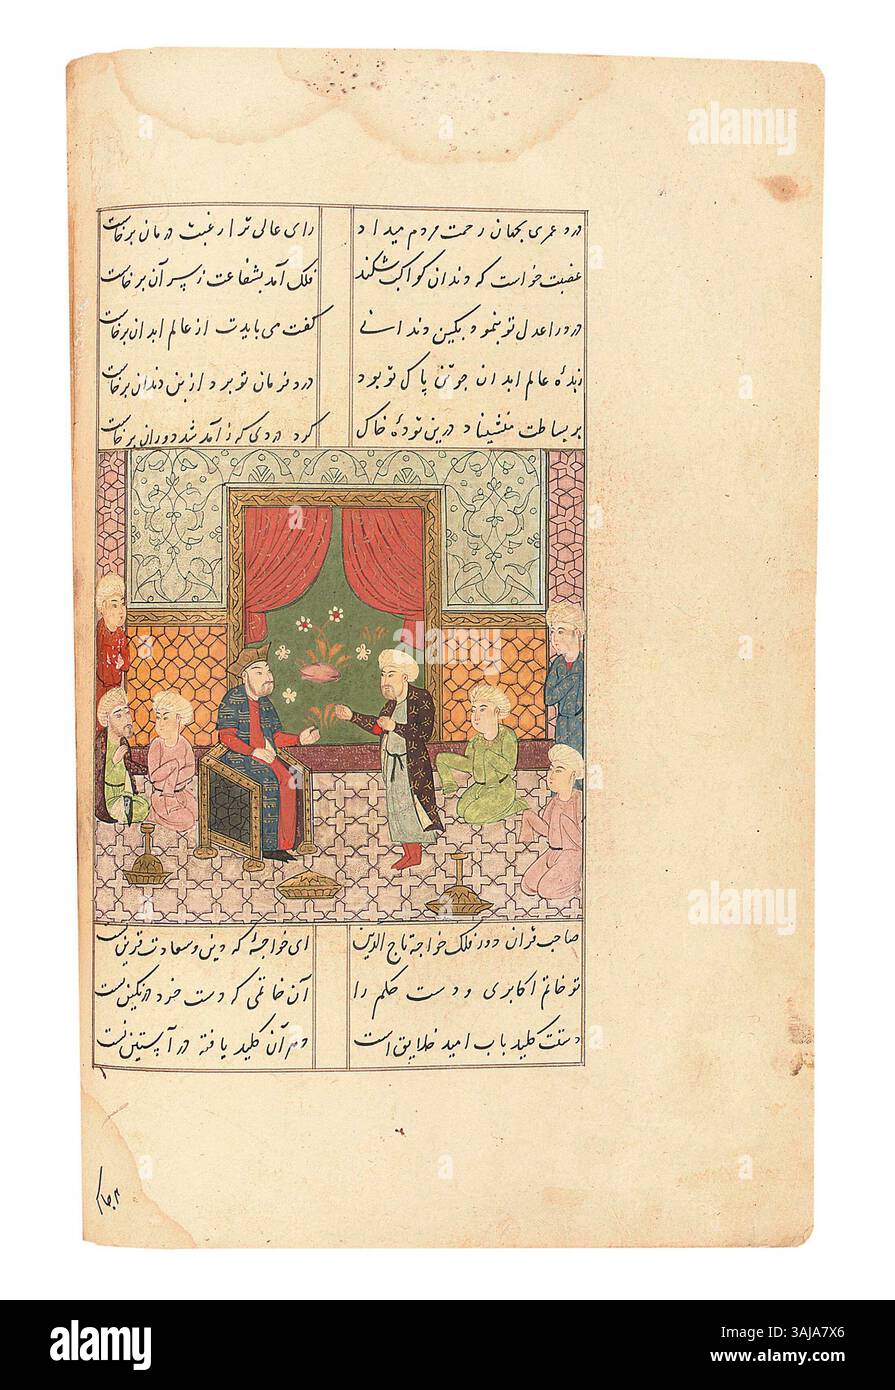 در و عمری بجهان رحمت مردم میداد رای عالی ترا رغبت درمان برخاست
غضبت خواست که دندان کواکب شکند فلک آمد بشفاعت ز سر آن برخاست
در ورا عدل تو بنمود بکین دندانی گفت می بایدت از عالم ابدان برخاست
زبدۀ عالم ابدان جوتنی پاک تو بود درد فرمان تو برد و از بن دندان برخاست
بر بساطت منشیناد درین تودۀ خاک کرد دردی که ز آمد شد دوران برخاست
صاحب قران دور فلک خواجه تاج الدین ای خواجۀ که دین و سعادت قرین تست
تو خاتم اکابری و دست حکم را آن خاتمی که دست خرد در نگین تست
دستت کلید باب امید خلایق است وان کلید یافته در آستین تست
alamy
Image ID: 3AJA7X6
www.alamy.com